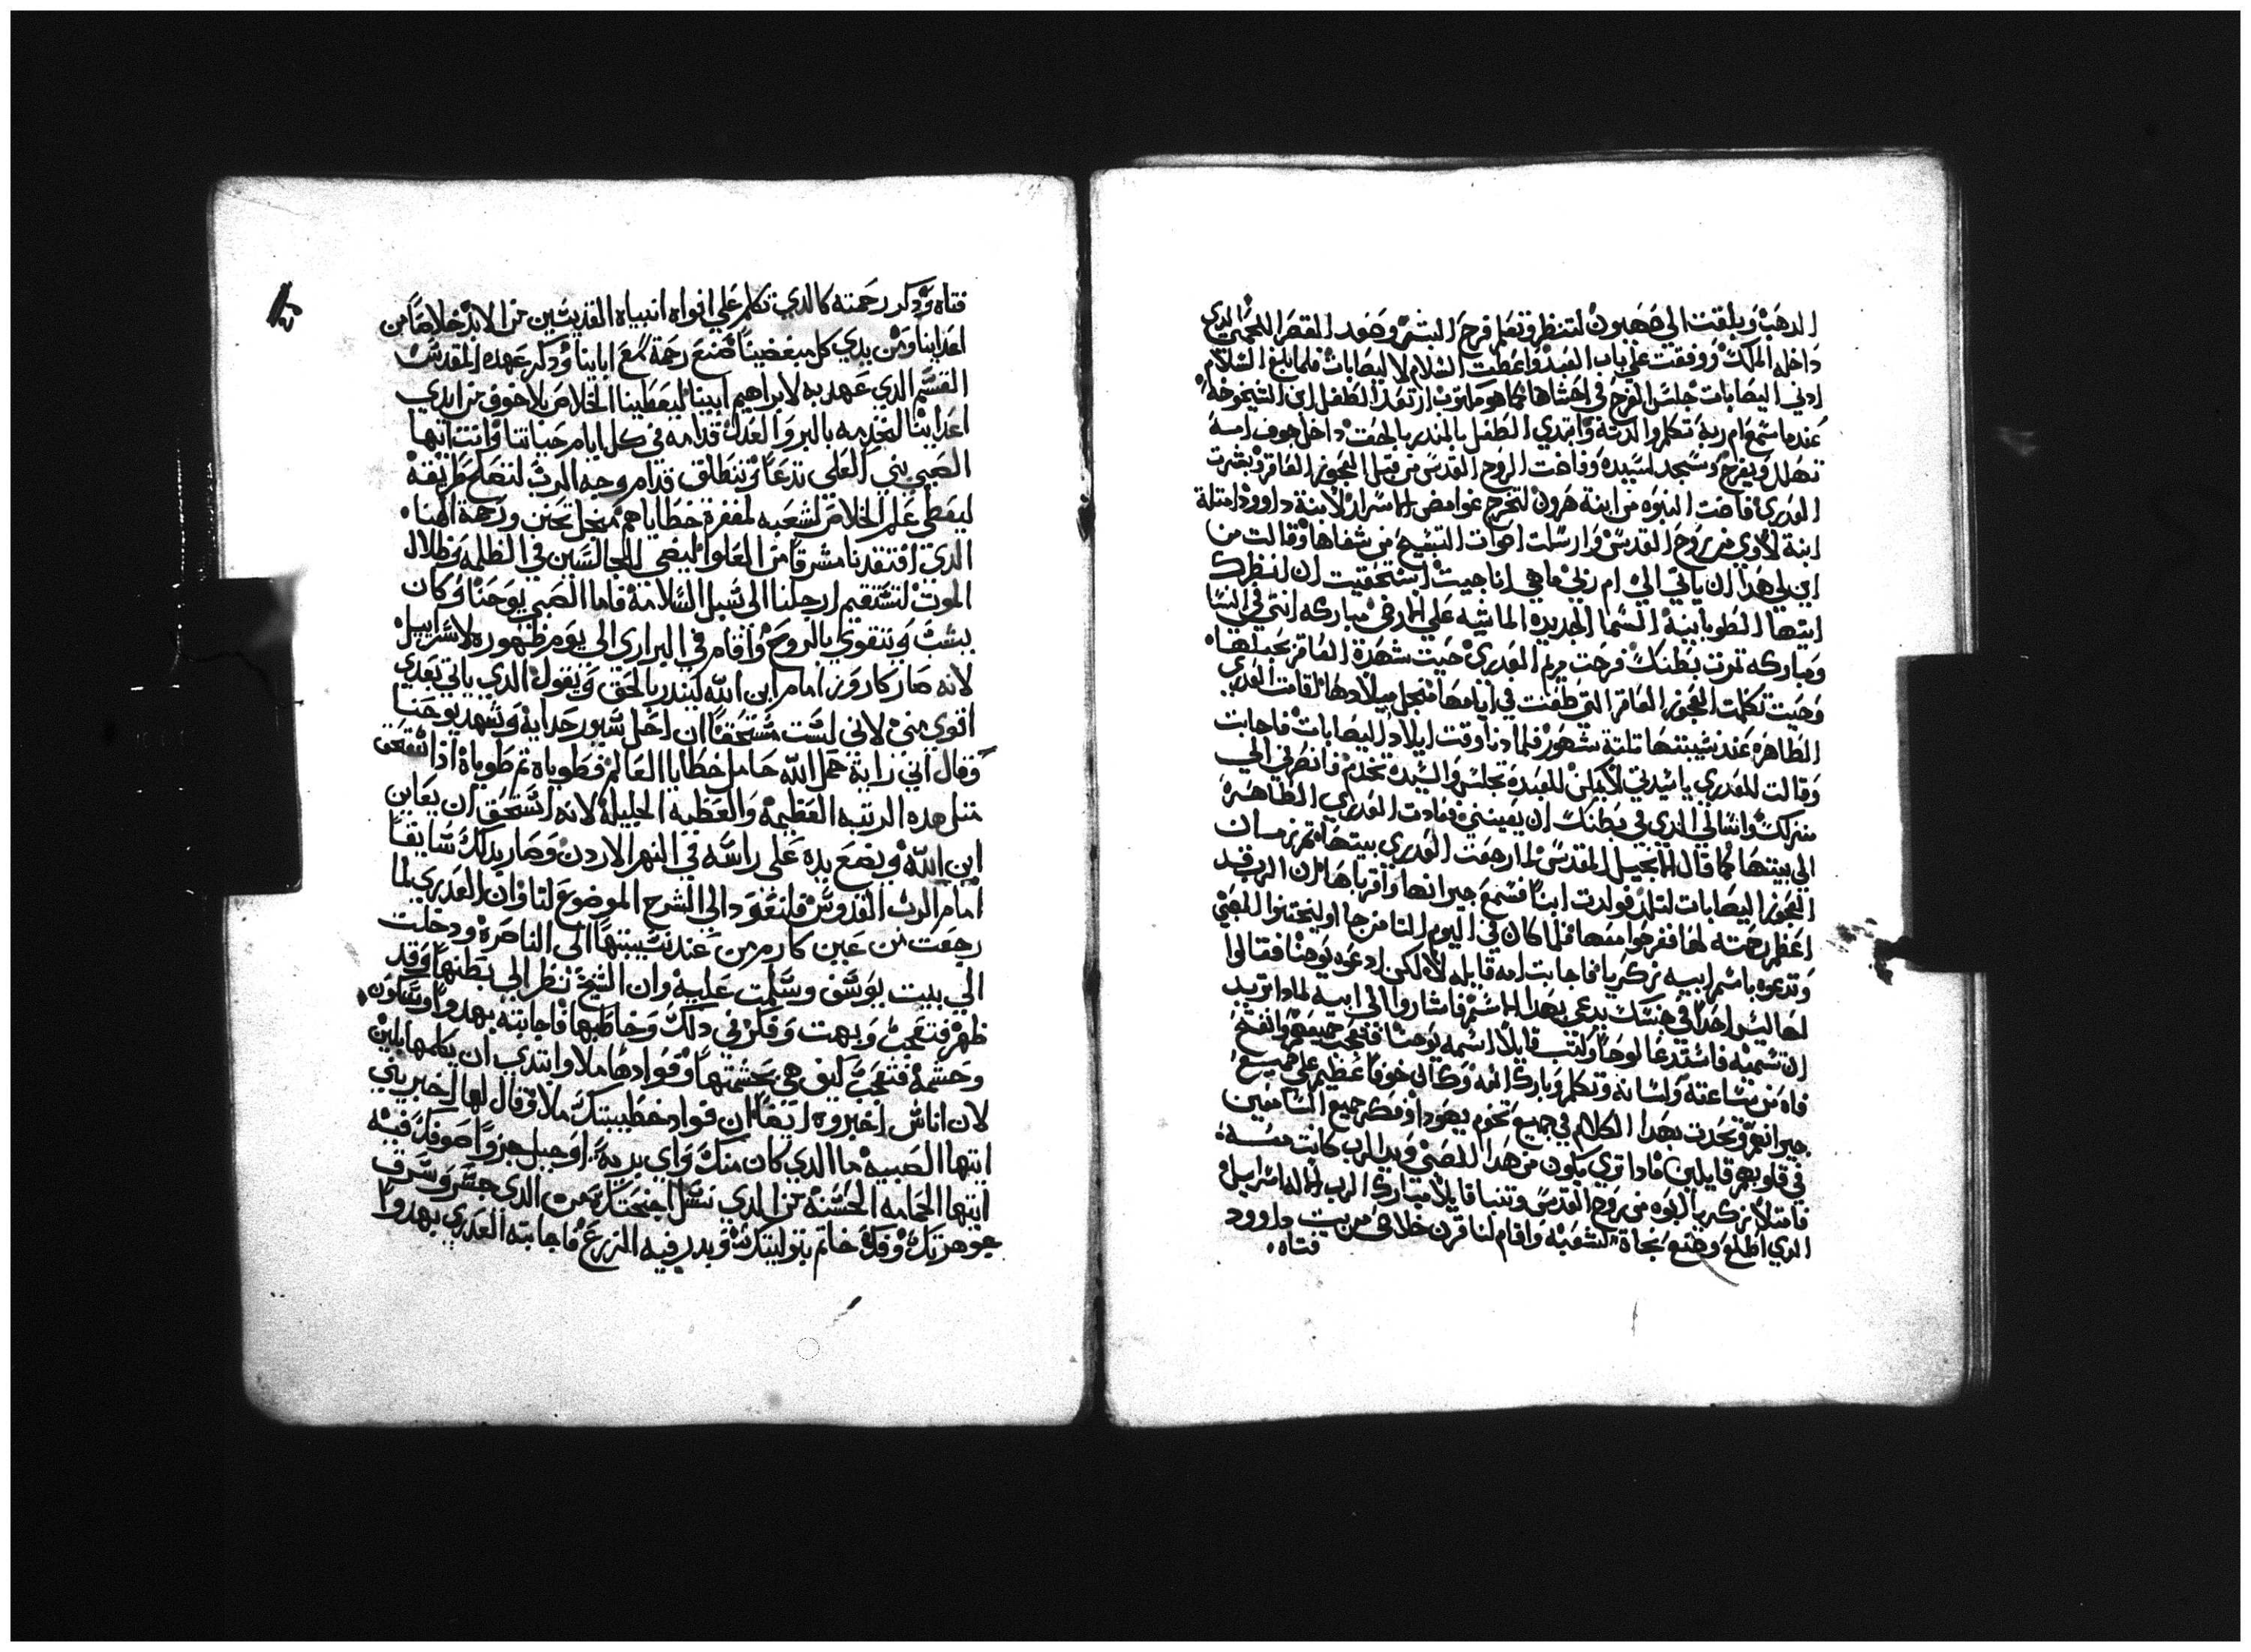 الدهب وبلغت الي صهيون لتنظر وتعلم فرح البشر وصعد القصر اللحمي الذي
داخله الملك ووقفت علي باب العبد واعطت السلام لاليصابات فلما بلغ السلام
ادني اليصابات جلس الفرح في احشاها كما هو مكتوب ارتعد الطفل ابن الشيخوخه
عندما سمع ام ربه تكلم والدته وابتدي الطفل بالمندر بالحق داخل جوف امه
تهلل ويفرح وسجد لسيده وفاضت الروح القدس من قبل العجوز العاقر وبشرت
العدري فاضت النبوه من ابنة هرون لتخرج غوامض الاسرار لابنة داوود امتلة
ابنة لاوي من روح القدس وارسلت اصوات التسبيح من شفاها وقالت من
اين لي هدا ان ياتي الي ام ربي ها هي انا حيت استحقيت ان انظرك
ايتها الطوبانية السما الجديده الماشيه علي الارض مباركه انتي في النسا
ومباركه ثمرت بطنك فرحت مريم العدري حيت شهدة العاقر بحبلها
وحيت تكلمت العجوز العاقر التي طعنت في ايامها من اجل ميلادها اقامت العدري
الطاهره عند نسيبتها تلتة شهور فلما دنا وقت ايلاد اليصابات فاجابت
وقالت للعدري يا سيدتي لا يمكن للعبدة تجلس والسيدة تخدم فانصرفي الي
منزلك واسالي الذي في بطنك ان يعينني فعادت العدري الطاهرة
الي بيتها كما قال الانجيل المقدس لما رجعت العدري بيتها تم زمان
العجوز اليصابات لتلد فولدت ابنا فسمع جيرانها واقرباها ان الرب قد
اعظم رحمته لها ففرحوا معها فلما كان في اليوم التامن جااو ليختنوا الصبي
وتدعوه باسم ابيه زكريا فاجابت امه قايله لا لكن ادعوه يوحنا فقالوا
لها ليس احدا في جنسك يدعي بهدا الاسم فاشاروا الي ابيه لمادا تريد
ان تسميه فاستدعا لوحا وكتب قايلا اسمه يوحنا فتعجب جميعهم وانفتح
فاه من ساعته ولسانه وتكلم وبارك الله وكان خوفا عظيم علي جميع
جيرانهم وتحدت بهدا الكلام في جميع تخوم يهودا وفكر جميع السامعين
في قلوبهم قايلين مادا تري يكون من هدا الصبي ويد الرب كانت معه
فامتلا زكريا ابوه من روح القدس وتنبا قايلا مبارك الرب اله اسراييل
الذي اطلع وصنع نجاة لشعبه واقام لنا قرن خلاص من بيت داوود
فتاه
فتاه ودكر رحمته كالذي تكلم علي افواه انبياه القديسين من الابد خلاصا من
اعداينا ومن يدي كل مبغضينا صنع رحمة مع ابايينا ودكر عهده المقدس
القسم الذي عهد به لابراهيم ابينا ليعطينا الخلاص بلا خوف من ايدي
اعداينا لنخدمه بالبر والعدل قدامه في كل ايام حياتنا وانت ايها
الصبي نبي العلي تدعا وتنطلق قدام وجه الرب لتصلح طريقه
ليعطي علم الخلاص لشعبه لمغفرة خطاياهم من اجل تحنن ورحمة الهنا
الذي افتقدنا مشرقا من العلو ليضي للجالسين في الظلمه وظلال
الموت لتستقيم ارجلنا الي سبل السلامة فاما الصبي يوحنا وكان
يشب ويتقوي بالروح واقام في البراري الي يوم ظهوره لاسراييل
لانه صار كاروز امام ابن الله ليندر بالحق ويقول الذي ياتي بعدي
اقوي مني لاني لست مستحقا ان احل سيور حدايه وشهد يوحنا
وقال اني راية حمل الله حامل خطايا العالم فطوباه تم طوباه ادا استحق
متل هده الرتبه العظيمه والعطيه الجليله لانه استحق ان يعاين
ابن الله ويضع يده علي راسه في النهر الاردن وصار بدلك سابقا
امام الرب القدوس فلنعود الي الشرح الموضوع لنا وان العدري لما
رجعت من عين كارم من عند نسيبتها الي الناصرة ودخلت
الي بيت يوسف وسلمت عليه وان الشيخ نظر الي بطنها وقد
ظهر فتعجب وبهت وفكر في دلك وخاطبها فاجابته بهدوا وسكون
وحشمه فتعجب كيف هي بحشمتها وفوادها ملا وابتدي ان يكلمها بلين
لان اناس اخبروه ايضا ان فواد خطيبتك ملا وقال لها اخبريني
ايتها الصبيه ما الذي كان منك واي بريه او جبل جزوا صوفك فيه
ايتها الحمامه الحسنه من الذي نسل اجنحتك من الذي جسر وسرق
جوهرتك وفك خاتم بتوليتك وبدر فيه الزرع فاجابته العدري بهدوا